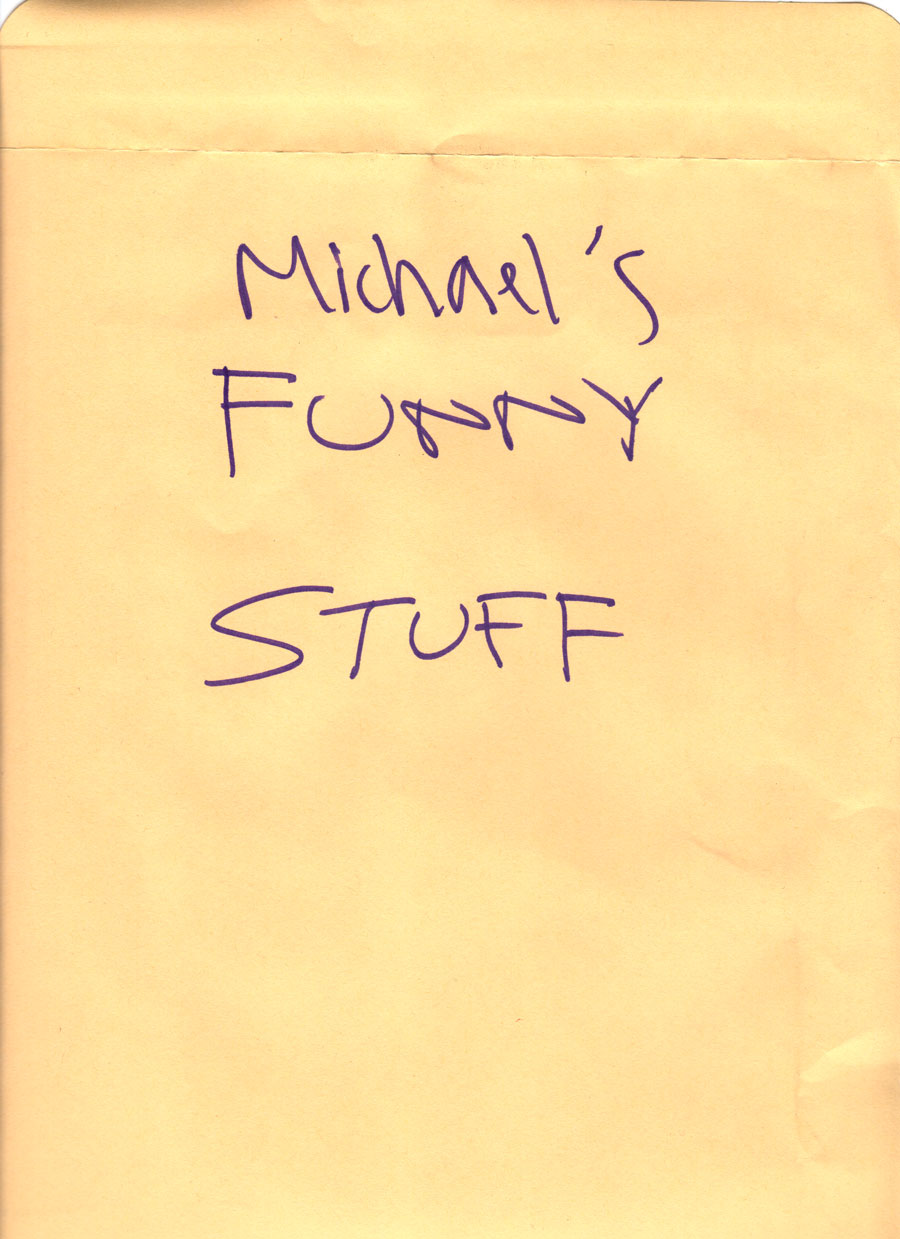 Michael's
FUNNY
STUFF